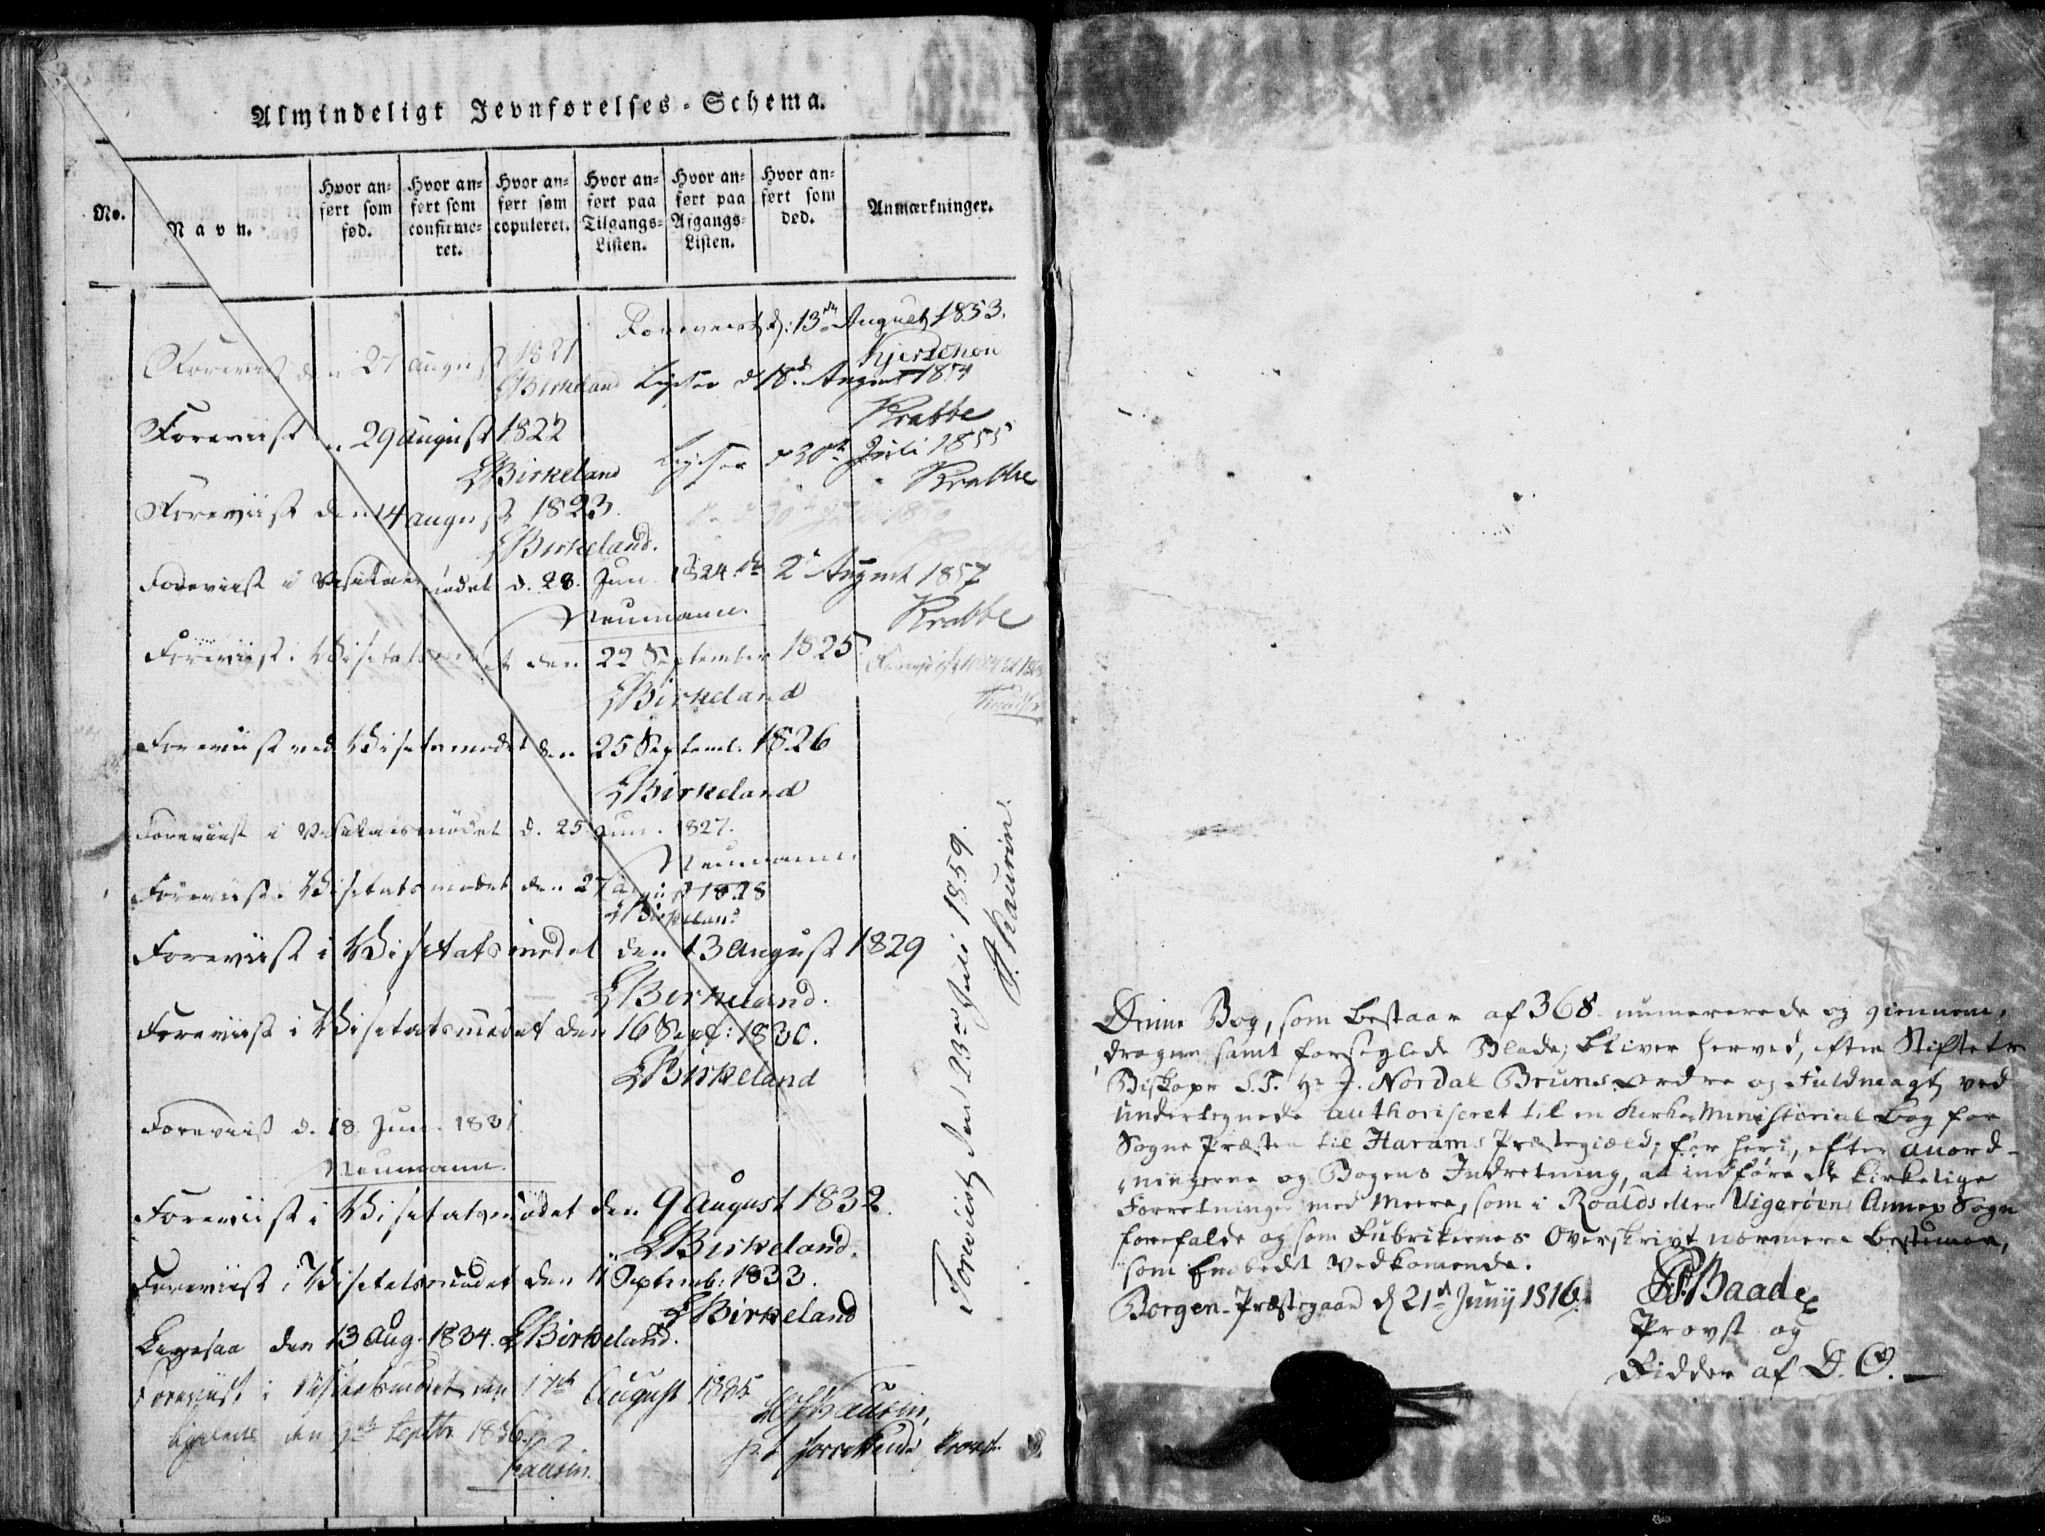 Almindeligt Jevnførelses-Schema.
No.
Navn.
Hvor an-
ført som
fød.
Hvor an-
ført som
confirme-
ret.
Hvor an-
ført som
copuleret.
Hvor an-
ført paa
Tilgangs-
Listen.
Hvor an-
ført paa
Afgangs-
Listen.
Hvor an-
ført som
død.
Anmærkninger.
Foreviist d: 13de August 1853.
Kjerschou
Foreviist den 27 August 1821
Birkeland
Ligesaa d 18de August 1854
Krabbe
Foreviist den 29 August 1822
Birkeland
Ligesaa d 30te Juli 1855
Krabbe
Foreviist den 14 August 1823.
Birkeland.
Foreviist i Visitatsmødet d. 28. Jun. 1824.
Neumann.
2den August 1857
Krabbe
Foreviist i Visitatsmødet den 22 September 1825
Birkeland
Foreviist ved Visitatsmødet den 25 Septemb. 1826
Birkeland
Foreviist i Visitatsmødet d. 25 Jun. 1827.
Neumann
Foreviist i Visitatsmødet den 27 August 1828
Birkeland
Foreviist i Visitatsmødet den 13 August 1829
Birkeland.
Foreviist i Visitatsmødet den 16 Sept: 1830.
Birkeland
Foreviist d. 18. Jun. 1831.
Neumann.
Foreviist i Visitatsmødet den 9 August 1832.
Birkeland.
Foreviist i Visitatsmødet den 11 Septemb: 1833.
Birkeland
Ligesaa den 13 Aug. 1834. Birkeland.
Foreviist i Visitatsmødet den 17de August 1835
Kaurin,
p.t. forrettende Provst.
Ligeledes den 9de Septbr 1836.
Kaurin.
Foreviist den 23de Juli 1859.
J. Kaurin
Denne Bog, som bestaar af 368 numererede og giennem-
dragne samt forseglede Blade, bliver herved, efter Stiftets
Biskops S.T. Hr J. Nordal Bruns ordre og Fuldmagt, ved
undertegnede authoriseret til en Kirke Ministerial bog for
Sogne Præsten til Harams Præstegield, for heri, efter anord-
ningerne og Bogens Indretning, at indføre de kirkelige
Forretninger med Meere, som i Roalds eller Vigerøens Annex Sogn
forefalde og som Rubrikernes Overskrivt nærmere bestemer,
som Embedet vedkomende.
Borgen-Præstegaard d 21de Junij 1816.
Baade
Provst og
Ridder af D.O.